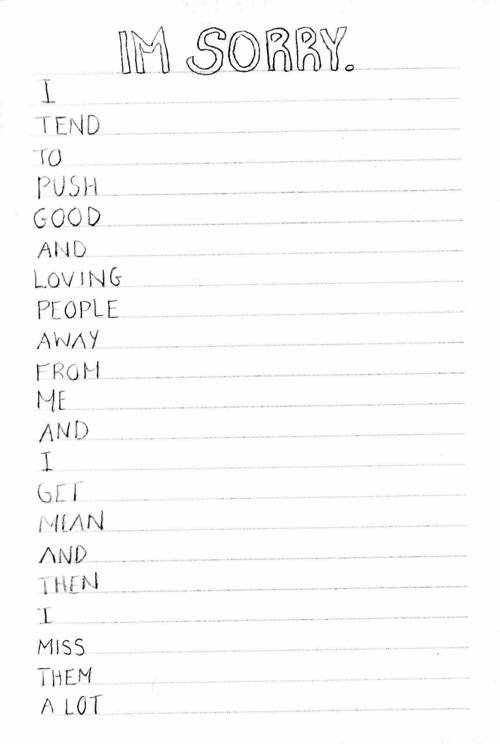 IM SORRY.
I
TEND
TO
PUSH
GOOD
AND
LOVING
PEOPLE
AWAY
FROM
ME
AND
I
GET
MEAN
AND
THEN
I
MISS
THEM
A LOT